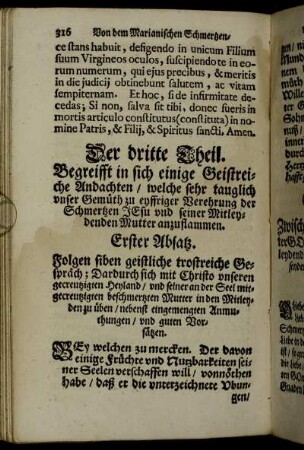 316 Von dem Marianischen Schmertzen/
ce stans habuit, defigendo in unicum Filium
suum Virgineos oculos, suscipiendo te in eo-
rum numerum, qui ejus precibus, & meritis
in die judicij obtinebunt salutem, ac vitam
sempiternam. Et hoc, si de infirmitate de-
cedas; Si non, salva sit tibi, donec fueris in
mortis articulo constitutus (constituta) in no-
mine Patris, & Filij, & Spiritus sancti, Amen.
Der dritte Theil.
Begreifft in sich einige Geistrei-
che Andachten / welche sehr tauglich
vnser Gemüth zu eyffriger Verehrung der
Schmertzen JEsu vnd seiner Mitley-
denden Mutter anzuflammen.
Erster Absatz.
Folgen siben geistliche trostreiche Ge-
spräch; Dardurch sich mit Christo vnseren
gecreutzigten Heyland / vnd seiner an der Seel mit-
gecreutzigten beschmertzten Mutter in den Mitley-
den zu üben / nebenst eingemengten Anmu-
thungen / vnd guten Vor-
sätzen.
BEy welchen zu mercken. Der davon
einige Früchte vnd Nutzbarkeiten sei-
ner Seelen verschaffen will / vonnöthen
habe / daß er die vnterzeichnete Ubun-
gen/